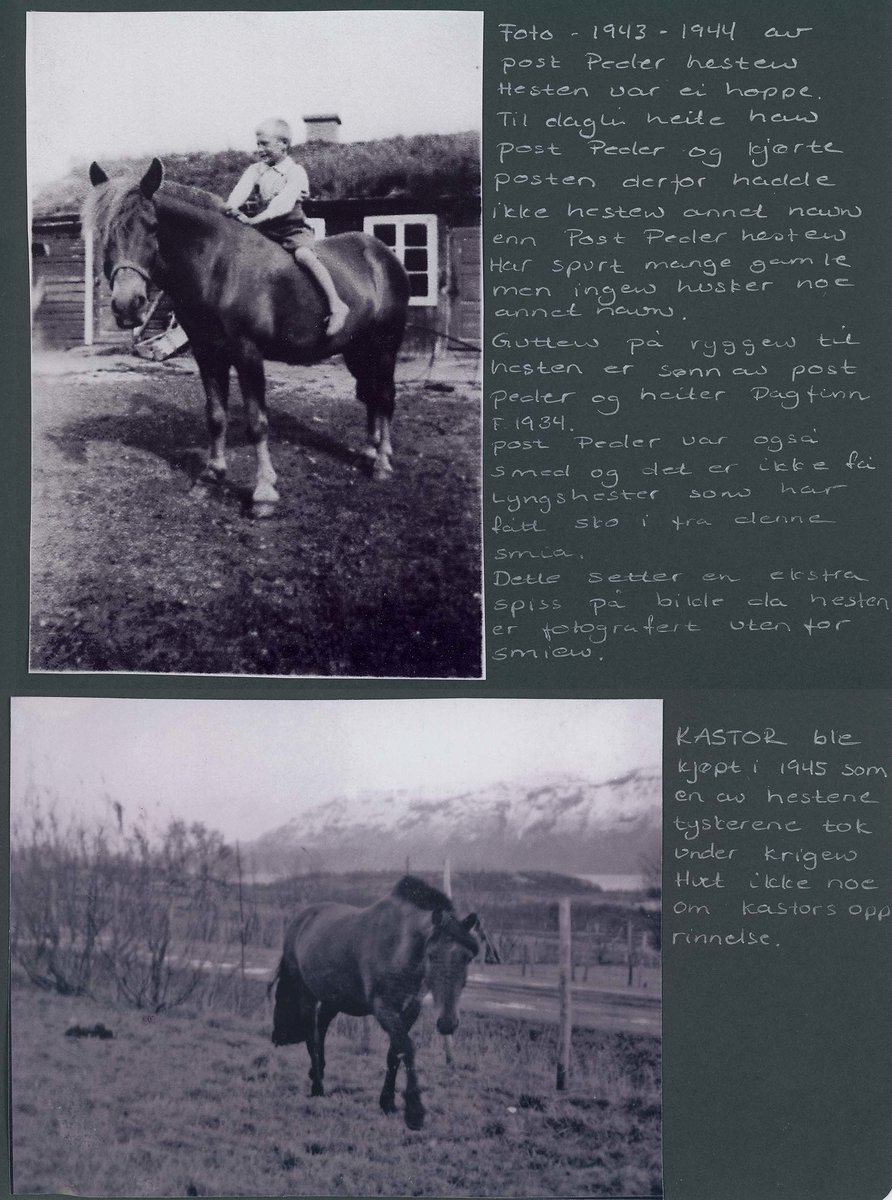 Foto - 1943 - 1944 av
post Peder hesten
Hesten var ei hoppe.
Til dagli heite han
post Peder og kjørte
posten derfor hadde
ikke hesten annet navn
enn Post Peder hesten
Har spurt mange gamle
men ingen husker noe
annet navn.
Gutten på ryggen til
hesten er sønn av post
Peder og heiter Dagfinn
F. 1934.
post Peder var også
smed og det er ikke få
Lyngshester som har
fått sko i fra denne
smia.
Dette setter en ekstra
spiss på bilde da hesten
er fotografert uten for
smien.
KASTOR ble
kjøpt i 1945 som
en av hestene
tyskerene tok
under krigen
Huet ikke noe
om Kastors opp
rinnelse.